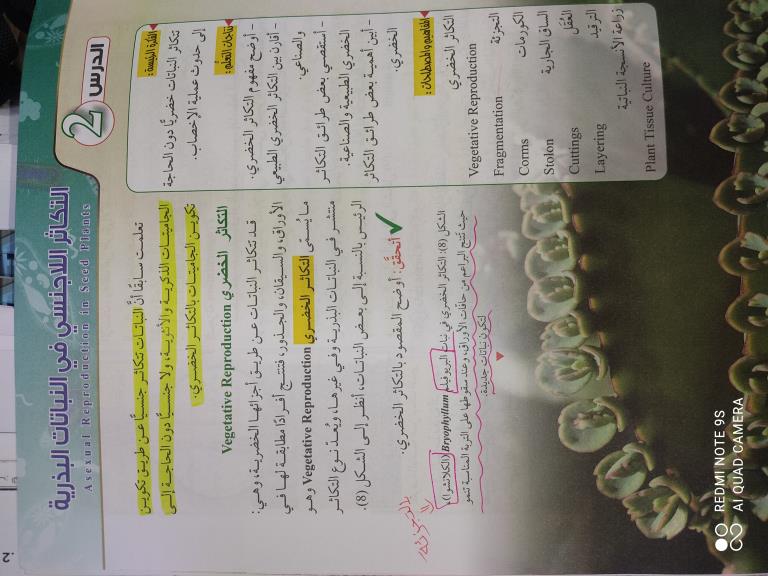 الدرس 2
التكاثر اللاجنسي في النباتات البذرية
Asexual Reproduction in Seed Plants
الفكرة الرئيسة:
تتكاثر النباتات خضريًّا دون الحاجة
إلى حدوث عملية الإخصاب.
نتاجات التعلم:
- أوضح مفهوم التكاثر الخضري.
- أقارن بين التكاثر الخضري الطبيعي
والصناعي.
- أستقصي بعض طرائق التكاثر
الخضري الطبيعية والصناعية.
- أبين أهمية بعض طرائق التكاثر
الخضري.
المفاهيم والمصطلحات:
التكاثر الخضري
Vegetative Reproduction
التجزئة Fragmentation
الكورمات Corms
الساق الجارية Stolon
العُقَل Cuttings
الترقيد Layering
زراعة الأنسجة النباتية
Plant Tissue Culture
تعلمت سابقًا أنَّ النباتات تتكاثر جنسيًّا عن طريق تكوين
الجاميتات الذكرية والأنثوية، ولاجنسيًّا دون الحاجة إلى
تكوين الجاميتات بالتكاثر الخضري.
التكاثر الخضري Vegetative Reproduction
قد تتكاثر النباتات عن طريق أجزائها الخضرية، وهي:
الأوراق، والسيقان، والجذور، فتنتج أفرادًا مطابقة لها في
ما يُسمّى التكاثر الخضري Vegetative Reproduction وهو
منتشر في النباتات البذرية وفي غيرها، ويُعدّ نوع التكاثر
الرئيس بالنسبة إلى بعض النباتات، أنظر إلى الشكل (8).
أتحقق: أوضح المقصود بالتكاثر الخضري.
الشكل (8): التكاثر الخضري في نبات البريوفيلم Bryophyllum (الكلانشو)،
حيث تنتج البراعم من حافات الأوراق، وعند سقوطها على التربة المناسبة تنمو
لتكون نباتات جديدة.
2.
REDMI NOTE 9S
AI QUAD CAMERA